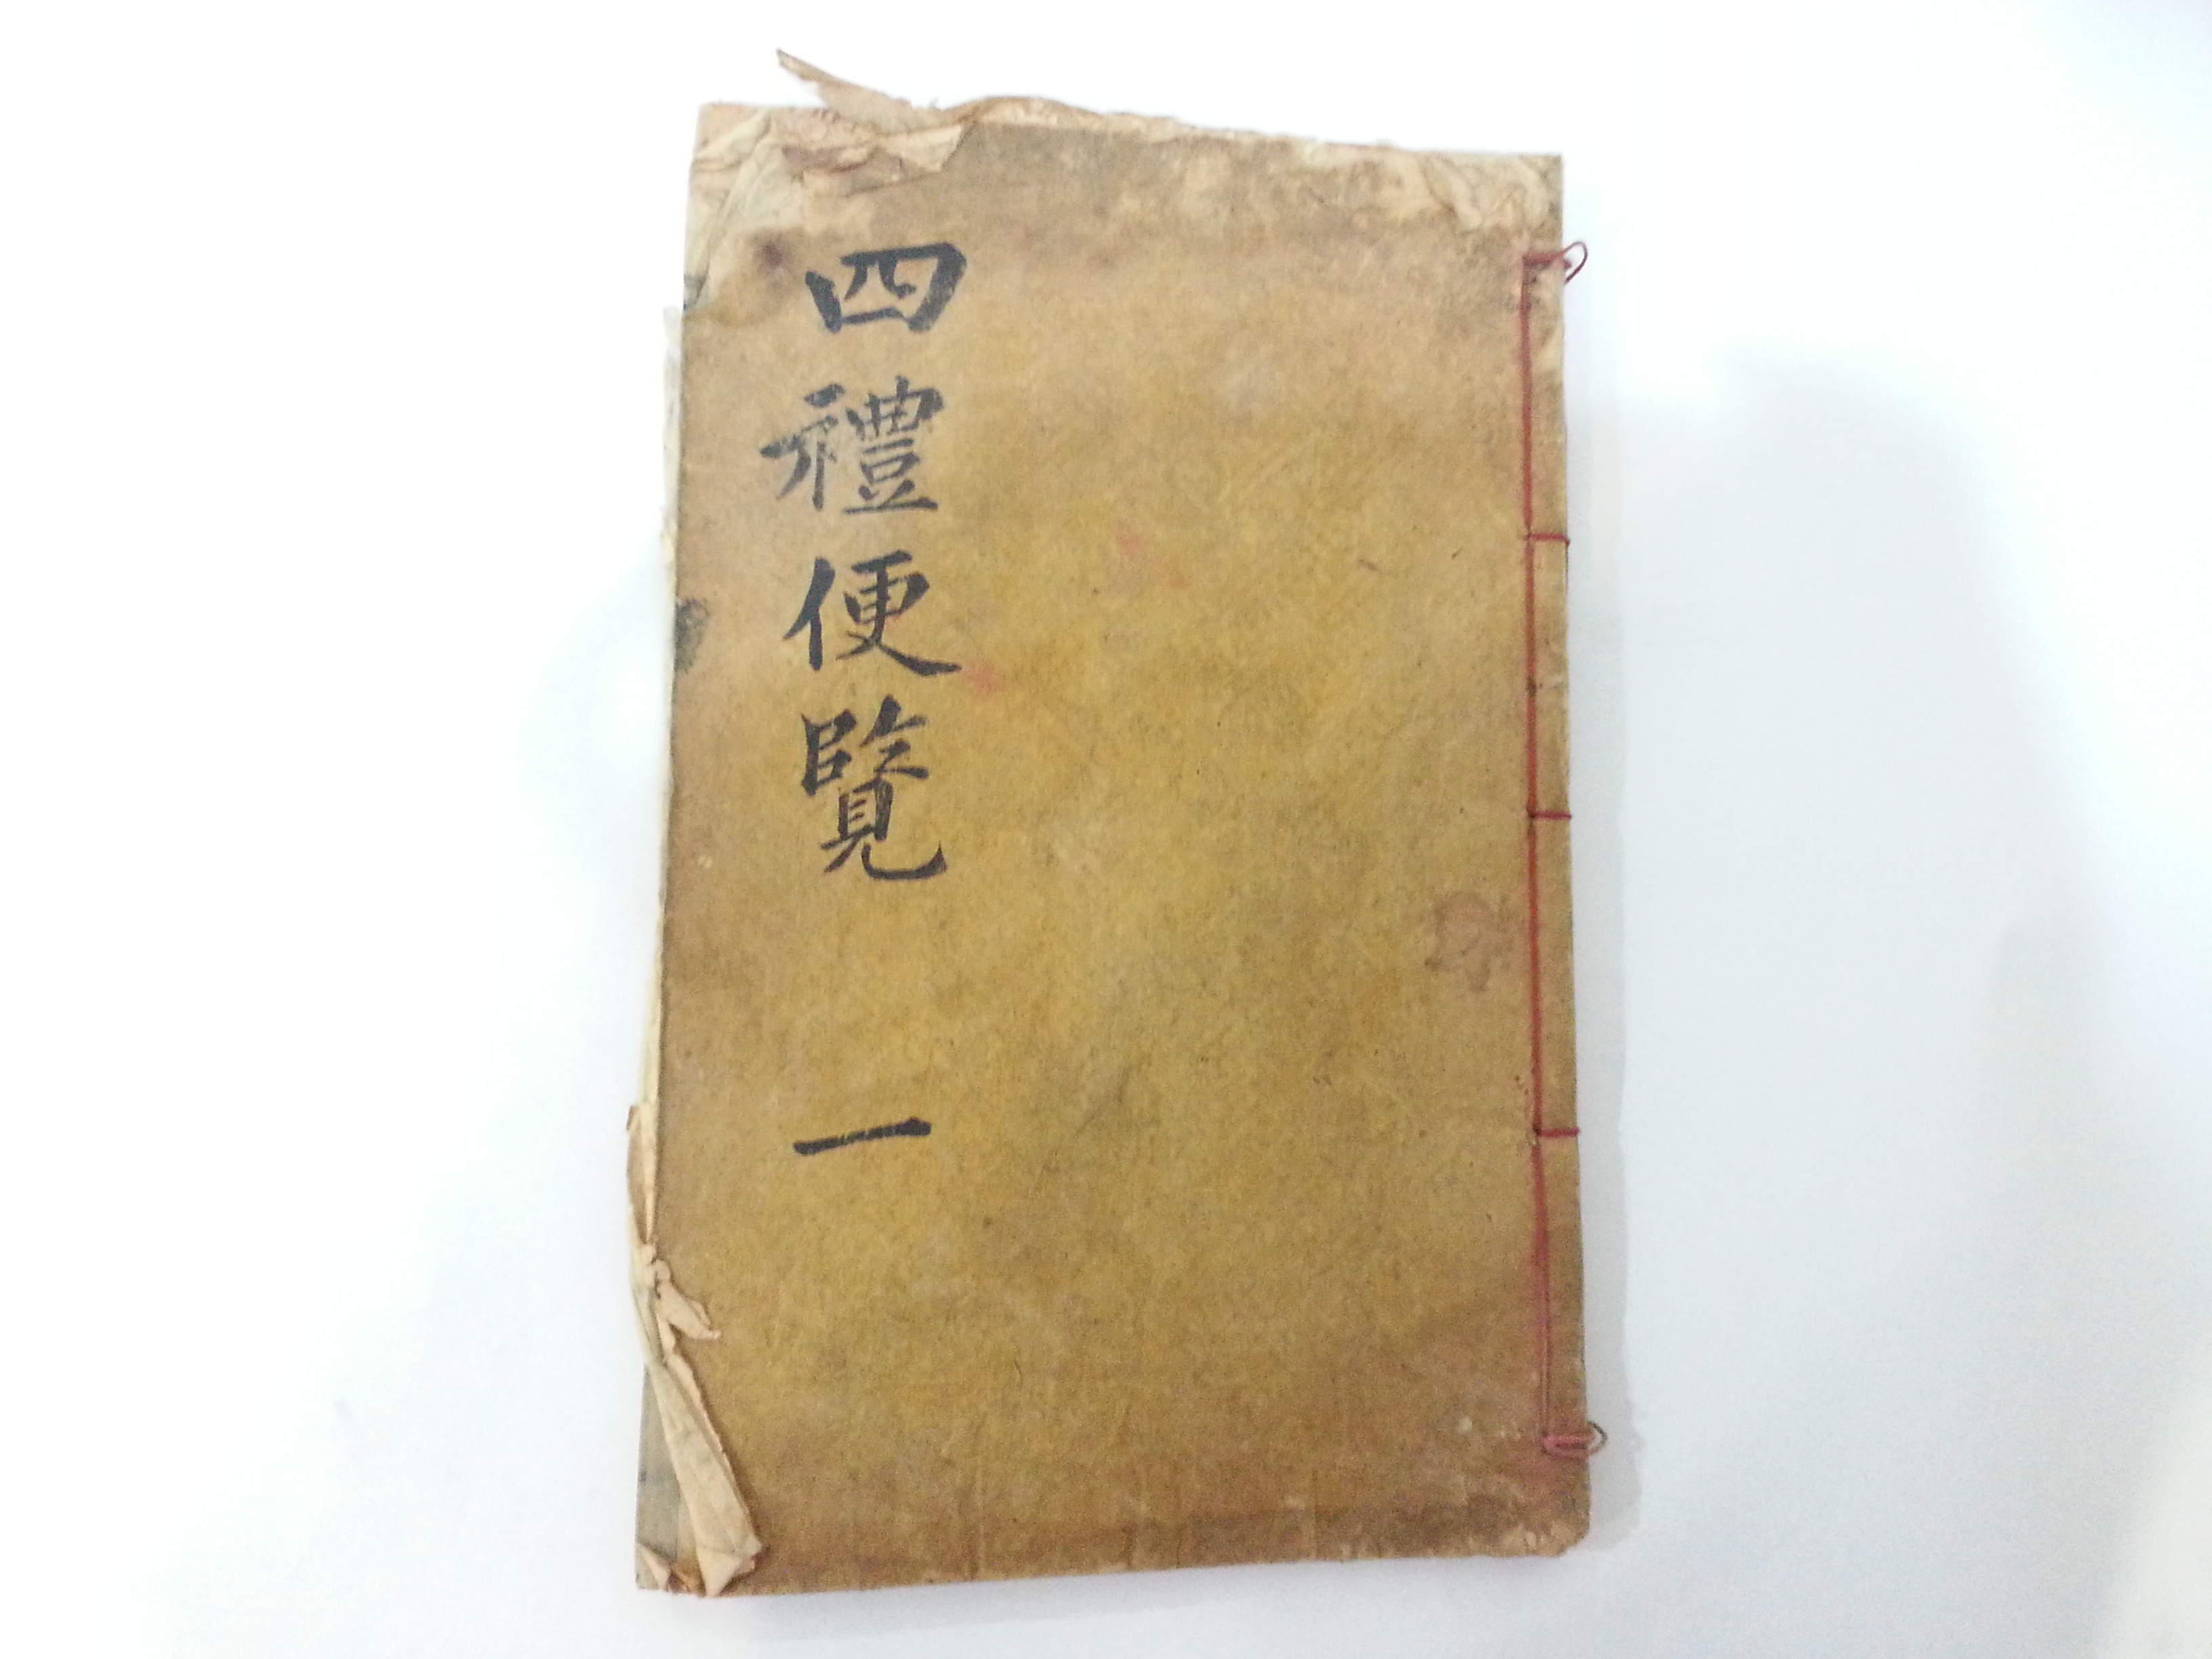 四禮便覽 一